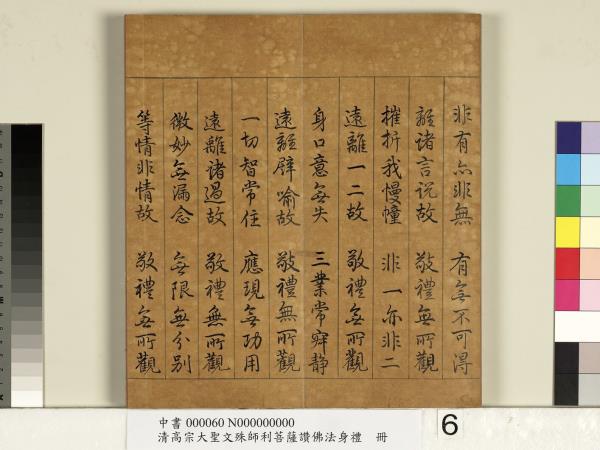 非有亦非無　有無不可得
離諸言說故　敬禮無所觀
摧折我慢幢　非一亦非二
遠離一二故　敬禮無所觀
身口意無失　三業常寂靜
遠離譬喻故　敬禮無所觀
一切智常住　應現無功用
遠離諸過故　敬禮無所觀
微妙無漏念　無限無分別
等情非情故　敬禮無所觀
中書 000060 N000000000
清高宗大聖文殊師利菩薩讚佛法身禮　冊
6